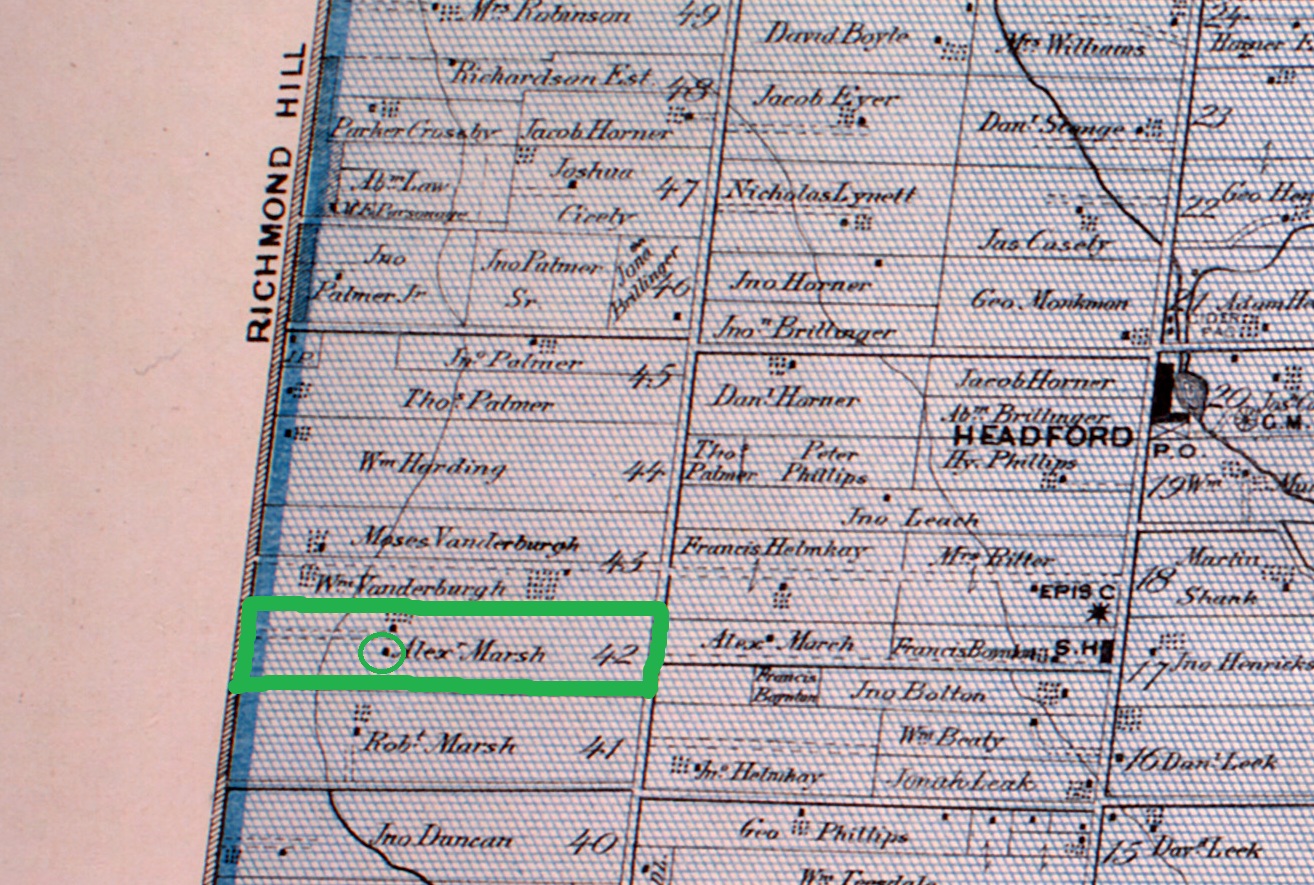 RICHMOND HILL
Mrs Robinson 49
Richardson Est. 48
Parker Crosby
Jacob Horner
Abm Law
M.E. Parsonage
Joshua
Cicely
47
Jno
Palmer Jr
Jno Palmer
Sr.
Jane
Brillinger
46
Jno Palmer
45
Thos Palmer
Wm Harding 44
Moses Vanderburgh
43
Wm Vanderburgh
Alexr Marsh 42
Robt Marsh 41
Jno Duncan 40
David Boyle
Mrs Williams
Jacob Eyer
Danl Stonge
Nicholas Lynett
Jas Casely
Jno Horner
Geo. Monkman
Jno Brillinger
Danl Horner
Jacob Horner
Abm Brillinger
HEADFORD
Thos
Palmer
Peter
Phillips
Hy. Phillips
Jno Leach
Francis Helmkay
Mrs Bitter
EPIS C
Alexr March
Francis
S.H
Francis
Boynton
Jno Botton
Wm Beaty
Jno Helmkay
Jonah Leak
Geo Phillips
Wm Teesdale
24
23
22 Geo
21 Adam
20
G.M.
P.O.
19 Wm
Martin
18 Shank
17 Jno Henricks
16 Danl Leek
15 Davd Leek